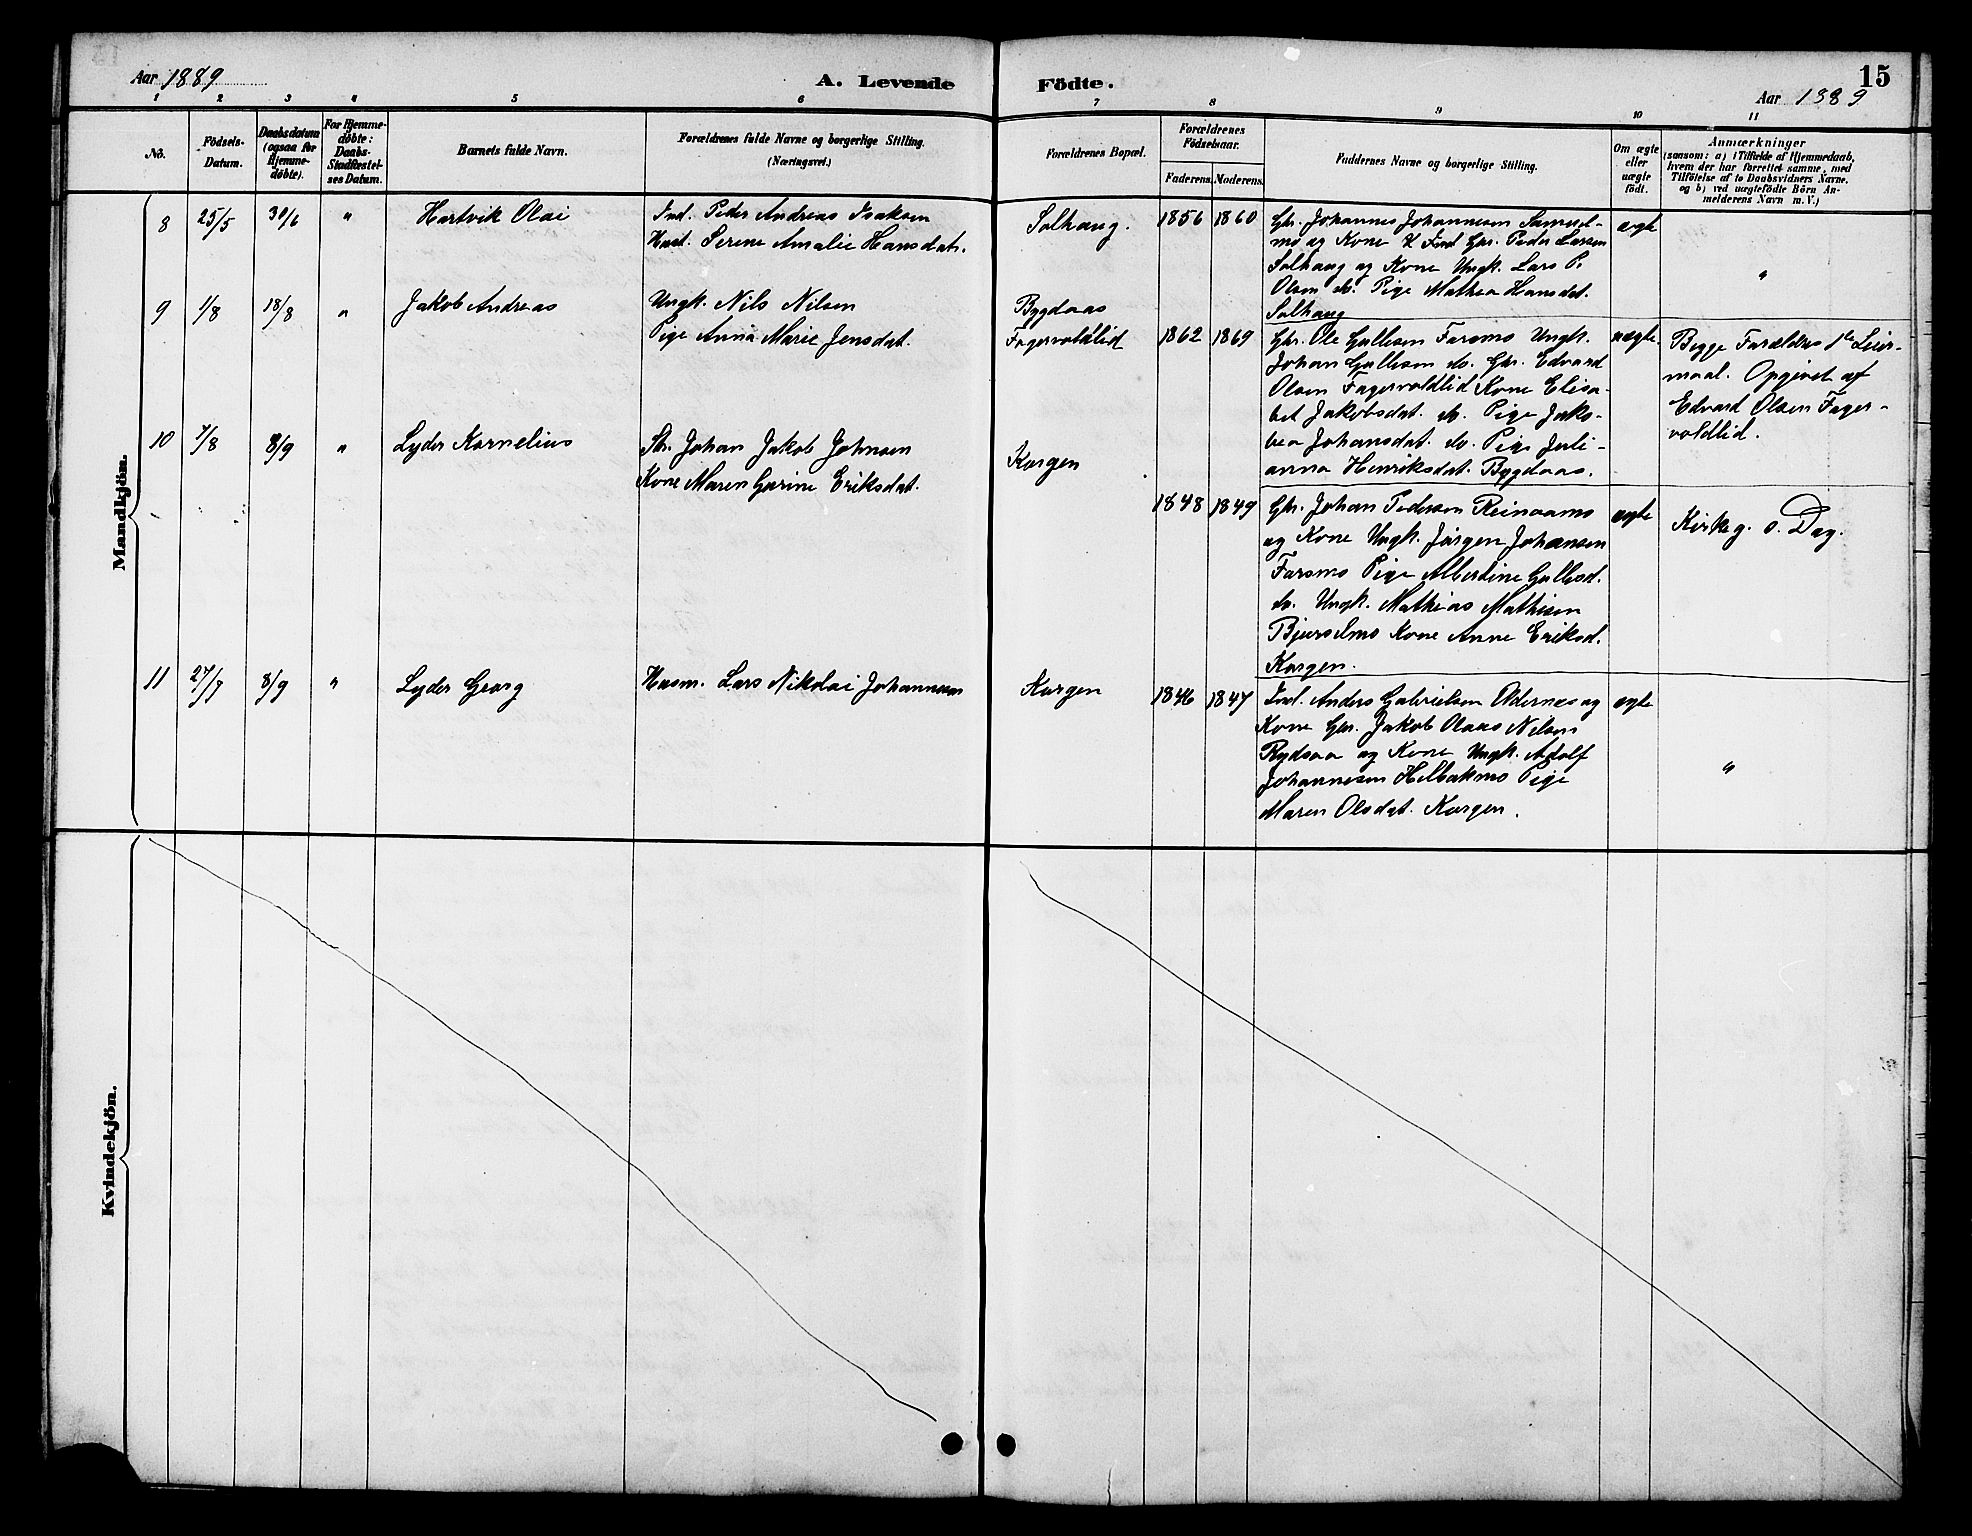 Aar 1889
A. Levende Födte.
Aar 1889
15
1 2 3 4 5 6 7 8 9 10 11
No.
Födsels-
Datum.
Daabsdatum
(ogsaa for
Hjemme-
døbte).
For Hjemme-
døbte:
Daabs-
Stadfæstel-
ses Datum.
Barnets fulde Navn.
Forældrenes fulde Navne og borgerlige Stilling.
(Næringsvei.)
Forældrenes Bopæl.
Forældrenes
Födselsaar.
Faderens. Moderens.
Faddernes Navne og borgerlige Stilling.
Om ægte
eller
uægte
födt.
Anmærkninger
(saasom: a) i Tilfælde af Hjemmedaab,
hvem der har forrettet samme, med
Tilföielse af to Daabsvidners Navne.
og b) ved uægtefödte Börn An-
melderens Navn m. V.)
Mandkjön.
8 25/5 30/6 " Hartvik Olai
Ind. Peder Andreas Isaksen
Hust. Serene Amalie Hansdat.
Solhaug.
1856 1860
Gbr. Johannes Johannesen Samuel-
mo og Kone Ind Gbr. Peder Larsen
Solhaug og Kone Ungk. Lars P.
Olsen do. Pige Mathea Hansdat.
Solhaug
ægte
"
9 1/8 18/8 " Jakob Andreas
Ungk. Nils Nilsen
Pige Anna Marie Jensdat.
Bygdaas
Fagervoldlid
1862 1869
Gbr. Ole Gullesen Farsmo Ungk.
Johan Gullesen do. Gbr. Edvard
Olsen Fagervoldlid Kone Elisa-
bet Jakobsdat. do. Pige Jako-
bea Johansdat. do. Pige Juli-
anna Henriksdat. Bygdaas.
uægte.
Begge Forældres 1ste Leier-
maal. Opgivet af
Edvard Olsen Fager-
voldlid.
10 7/8 8/9 " Lyder Kornelius
Sbr. Johan Jakob Johnsen
Kone Maren Gurine Eriksdat.
Korgen
1848 1849
Gbr. Johan Pedersen Reinaamo
og Kone Ungk. Jørgen Johansen
Farsmo Pige Albertine Gullesd.
do. Ungk. Mathias Mathisen
Bjurselmo Kone Anne Eriksd.
Korgen.
ægte
Kirkeg. s. Dag.
11 27/7 8/9 " Lyder Georg
Husm. Lars Nikolai Johannesen
Korgen
1846 1847
Ind. Anders Gabrielsen Oldernes og
Kone Gbr. Jakob Olaus Nilsen
Rydsaa og Kone Ungk. Adolf
Johannesen Helbakmo Pige
Maren Olsdat. Korgen.
ægte
"
Kvindekjön.